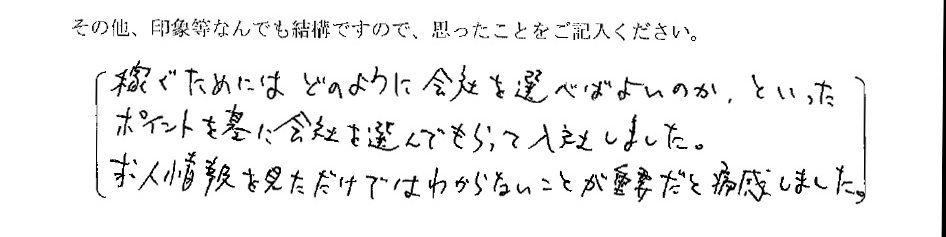 その他、印象等なんでも結構ですので、思ったことをご記入ください。
稼ぐためにはどのように会社を選べばよいのか、といった
ポイントを基に会社を選んでもらって入社しました。
求人情報を見ただけではわからないことが重要だと痛感しました。